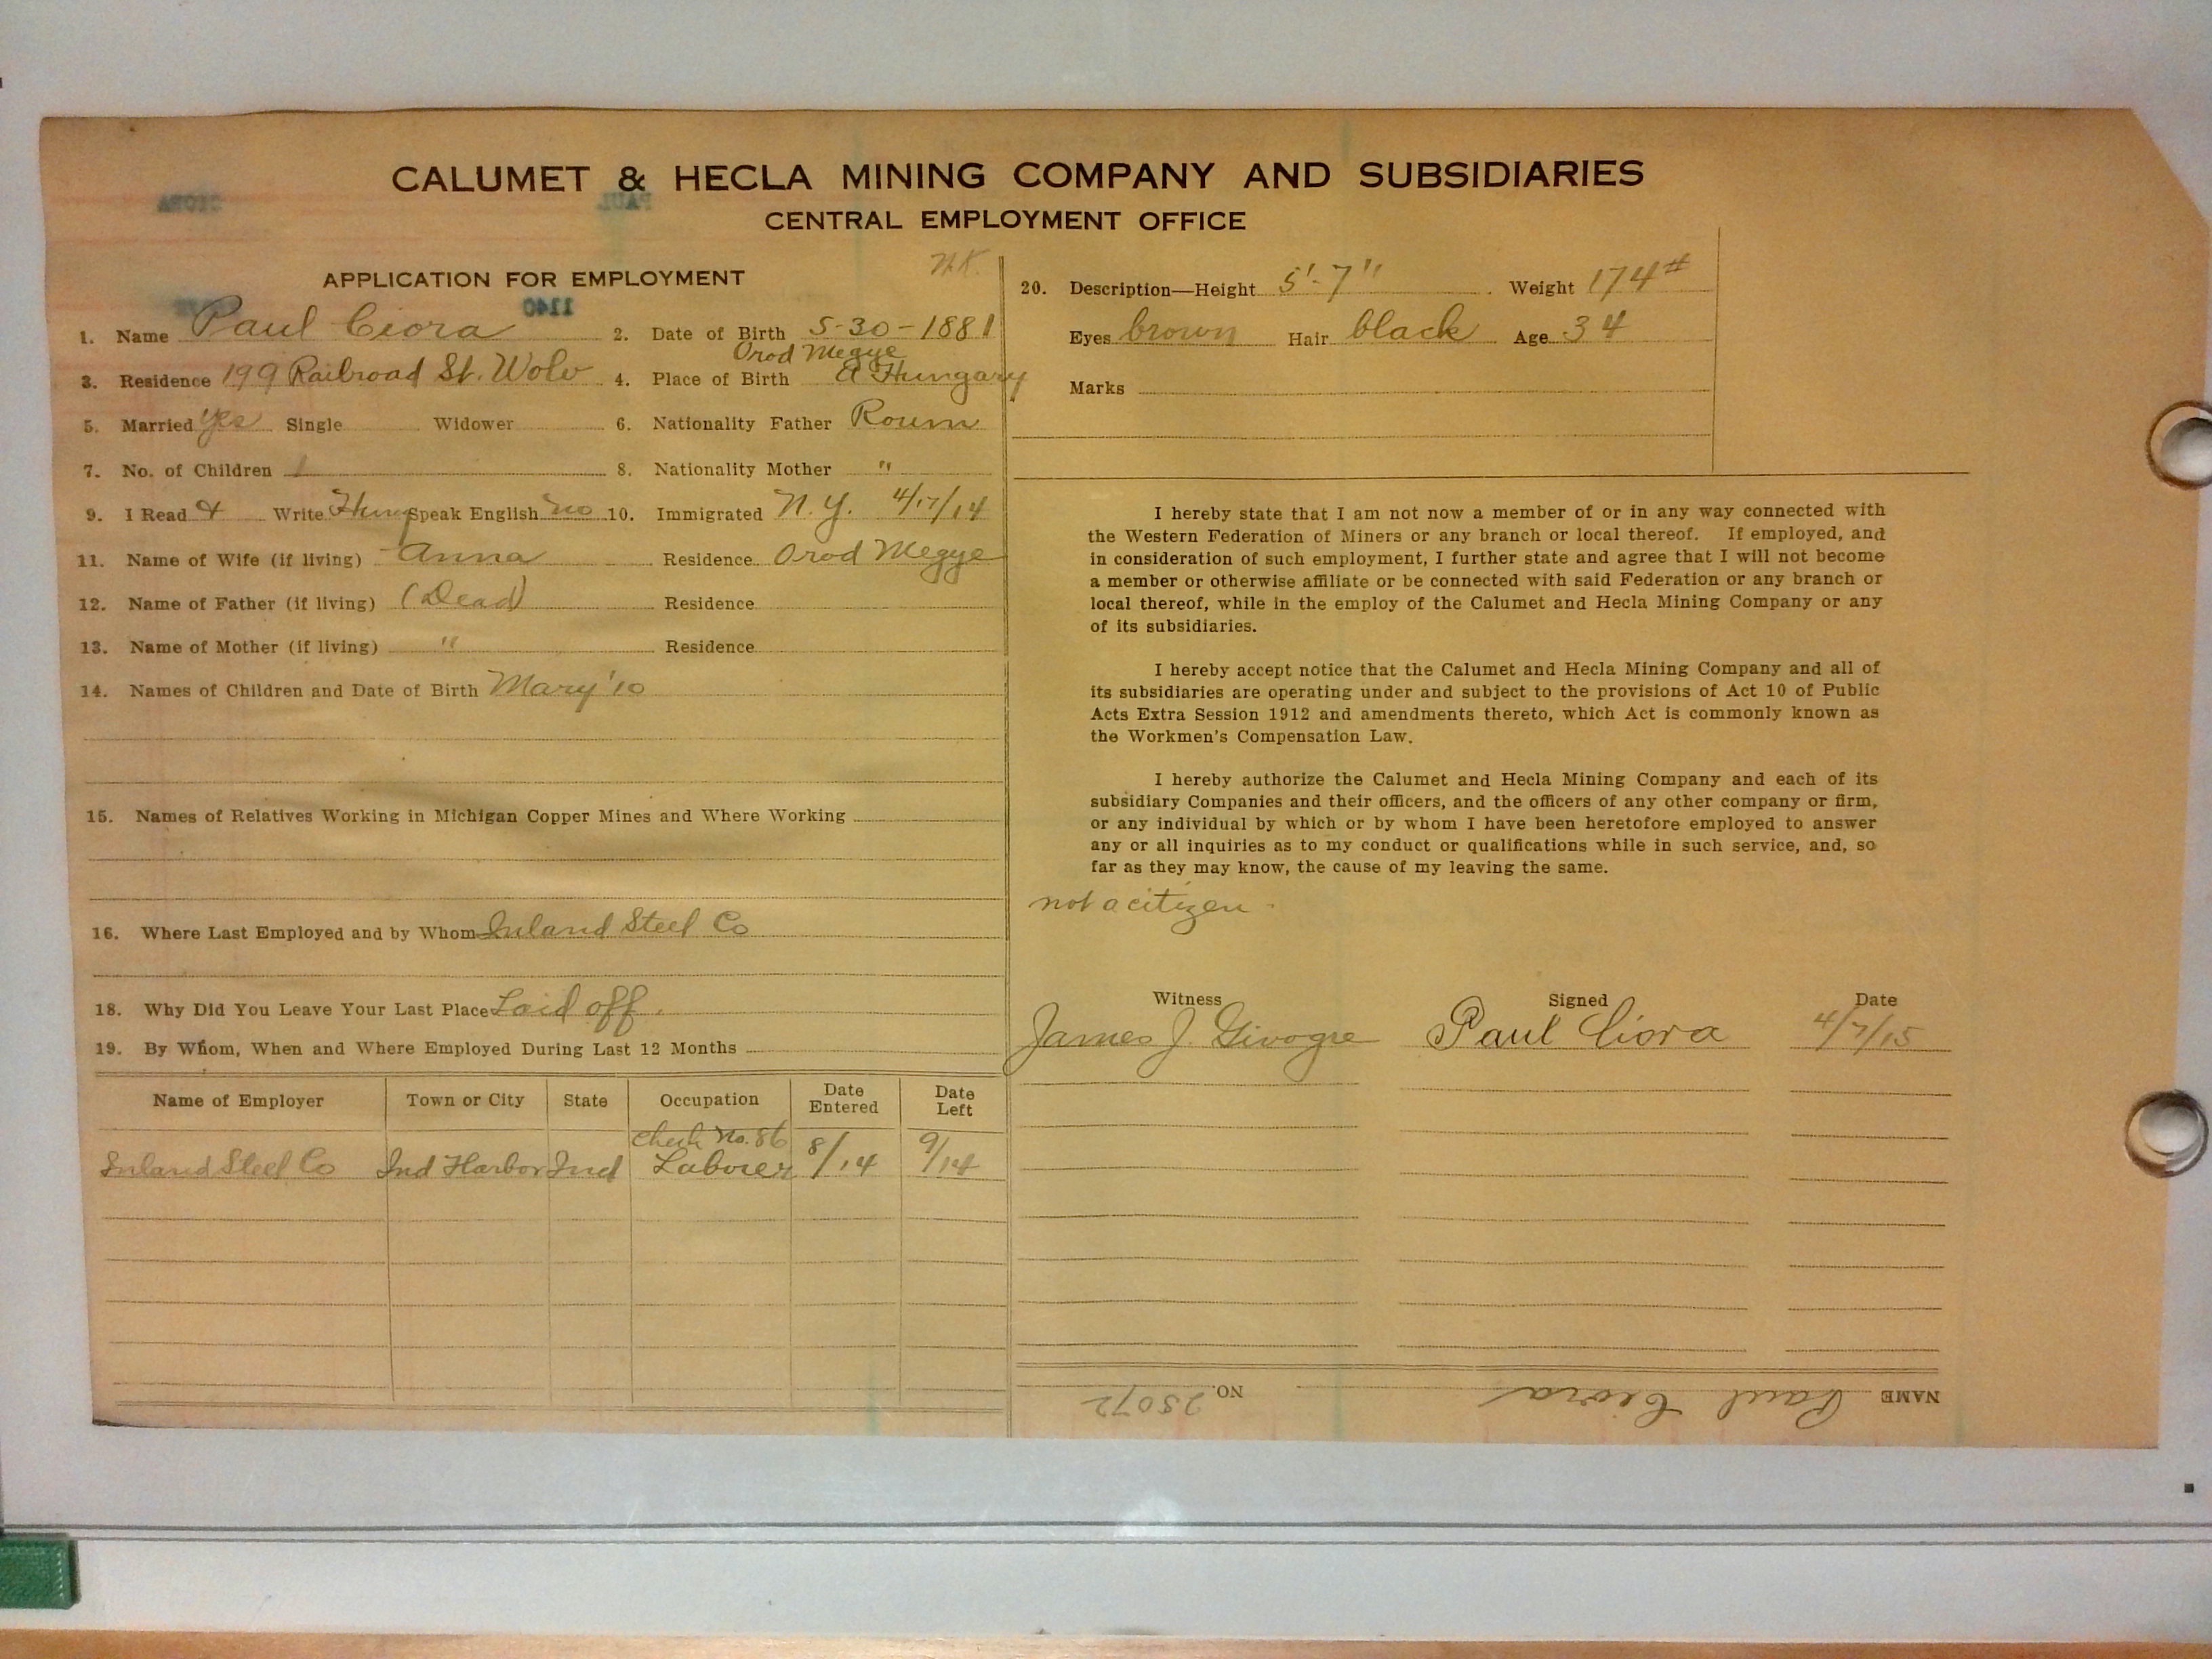 CALUMET & HECLA MINING COMPANY AND SUBSIDIARIES
CENTRAL EMPLOYMENT OFFICE
APPLICATION FOR EMPLOYMENT
1140
1. Name Paul Ciora 2. Date of Birth 5-30-1881
Orod Megye
3. Residence 199 Railroad St. Wolv 4. Place of Birth A Hungary
5. Married yes Single Widower 6. Nationality Father Roum
7. No. of Children 1 8. Nationality Mother "
9. I Read & Write Hung Speak English no 10. Immigrated N.Y. 4/17/14
11. Name of Wife (if living) Anna Residence Orod Megye
12. Name of Father (if living) (Dead) Residence
13. Name of Mother (if living) " Residence
14. Names of Children and Date of Birth Mary '10
15. Names of Relatives Working in Michigan Copper Mines and Where Working
16. Where Last Employed and by Whom Inland Steel Co
18. Why Did You Leave Your Last Place Laid off.
19. By Whom, When and Where Employed During Last 12 Months
Name of Employer Town or City State Occupation Date Entered Date Left
Check No. 86
Inland Steel Co Ind Harbor Ind Laborer 8/14 9/14
20. Description—Height 5'-7" Weight 174#
Eyes brown Hair black Age 34
Marks
I hereby state that I am not now a member of or in any way connected with
the Western Federation of Miners or any branch or local thereof. If employed, and
in consideration of such employment, I further state and agree that I will not become
a member or otherwise affiliate or be connected with said Federation or any branch or
local thereof, while in the employ of the Calumet and Hecla Mining Company or any
of its subsidiaries.
I hereby accept notice that the Calumet and Hecla Mining Company and all of
its subsidiaries are operating under and subject to the provisions of Act 10 of Public
Acts Extra Session 1912 and amendments thereto, which Act is commonly known as
the Workmen's Compensation Law.
I hereby authorize the Calumet and Hecla Mining Company and each of its
subsidiary Companies and their officers, and the officers of any other company or firm,
or any individual by which or by whom I have been heretofore employed to answer
any or all inquiries as to my conduct or qualifications while in such service, and, so
far as they may know, the cause of my leaving the same.
not a citizen
Witness Signed Date
James J. Givogre Paul Ciora 4/7/15
NAME Paul Ciora NO. 25072